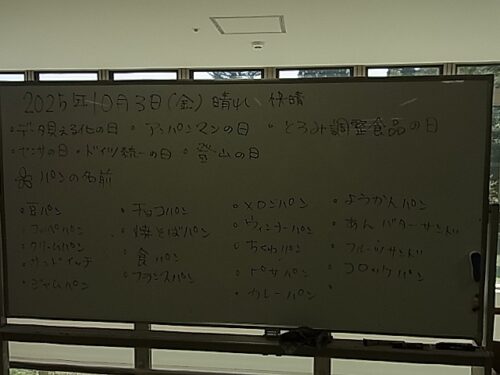 2025年10月3日(金) 晴れ 快晴
・データ見える化の日 ・アンパンマンの日 ・とろみ調整食品の日
・センサの日 ・ドイツ統一の日 ・登山の日
パンの名前
・豆パン ・チョコパン ・メロンパン ・ようかんパン
・コッペパン ・焼きそばパン ・ウィンナーパン ・あんバターサンド
・クリームパン ・食パン ・ちくわパン ・フルーツサンド
・サンドイッチ ・フランスパン ・ピザパン ・コロッケパン
・ジャムパン ・カレーパン ・